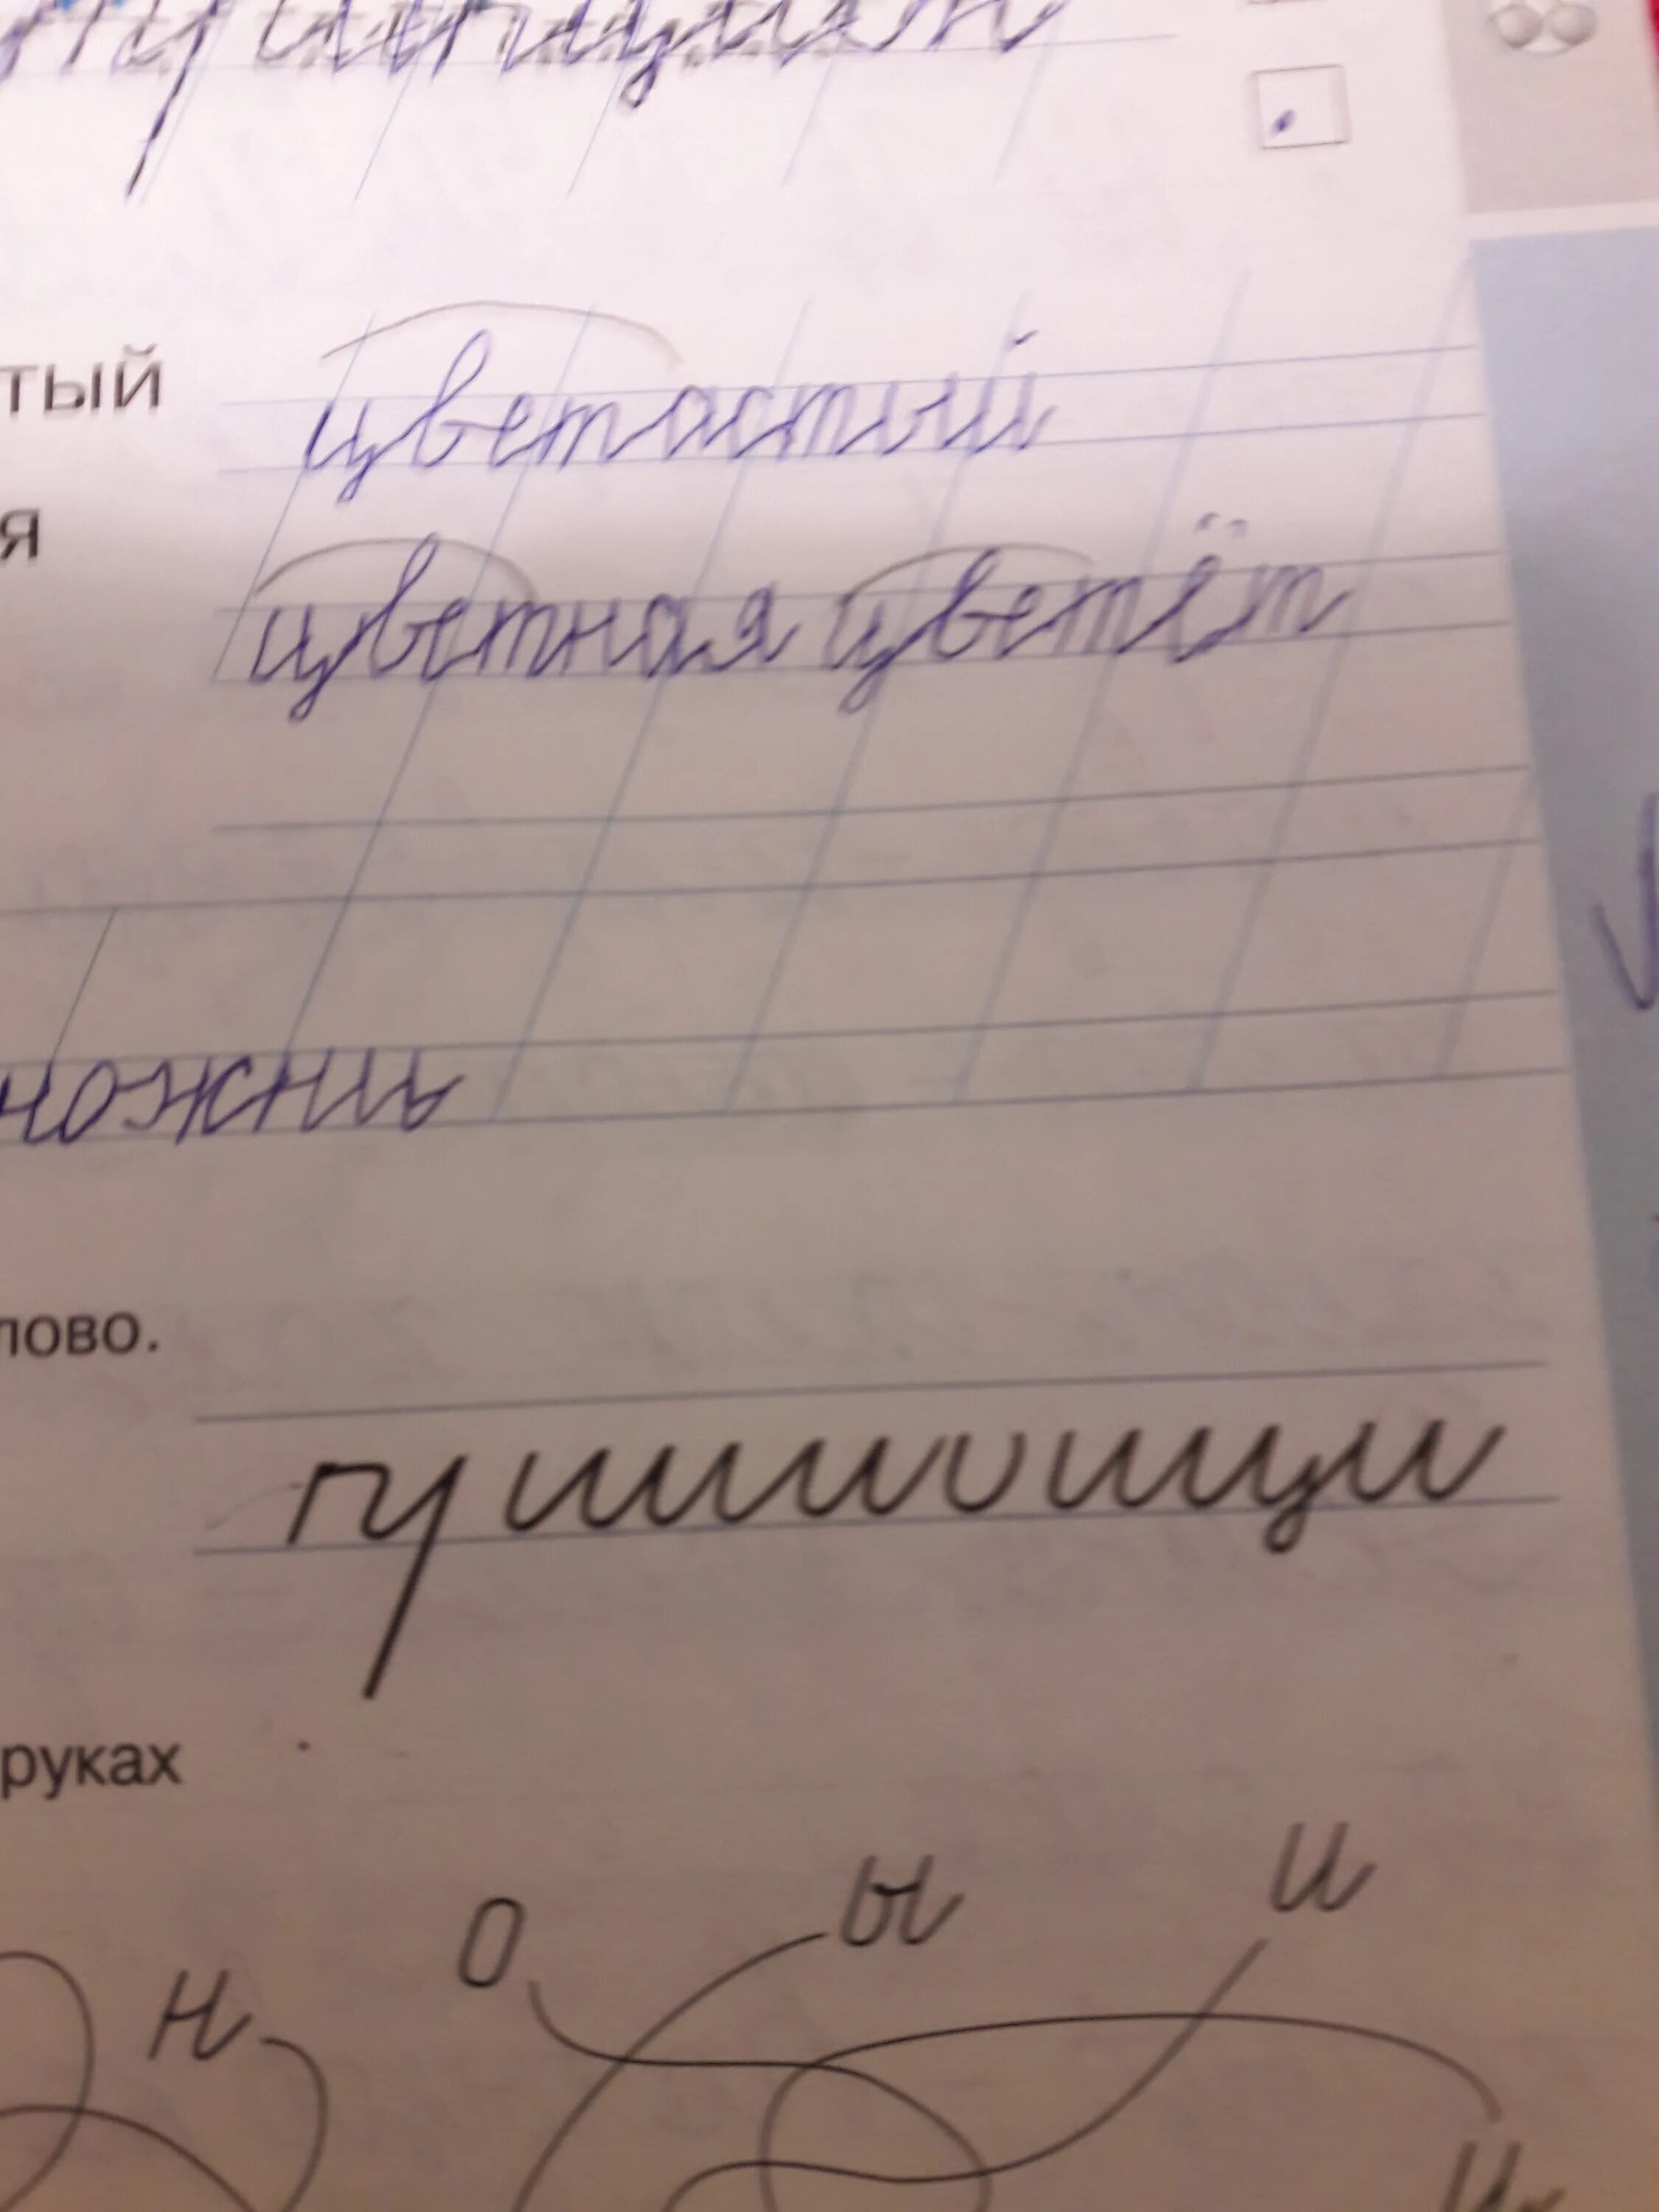 тый цветастый
я цветная цветёт
ножни
лово.
руках
О ы и
н